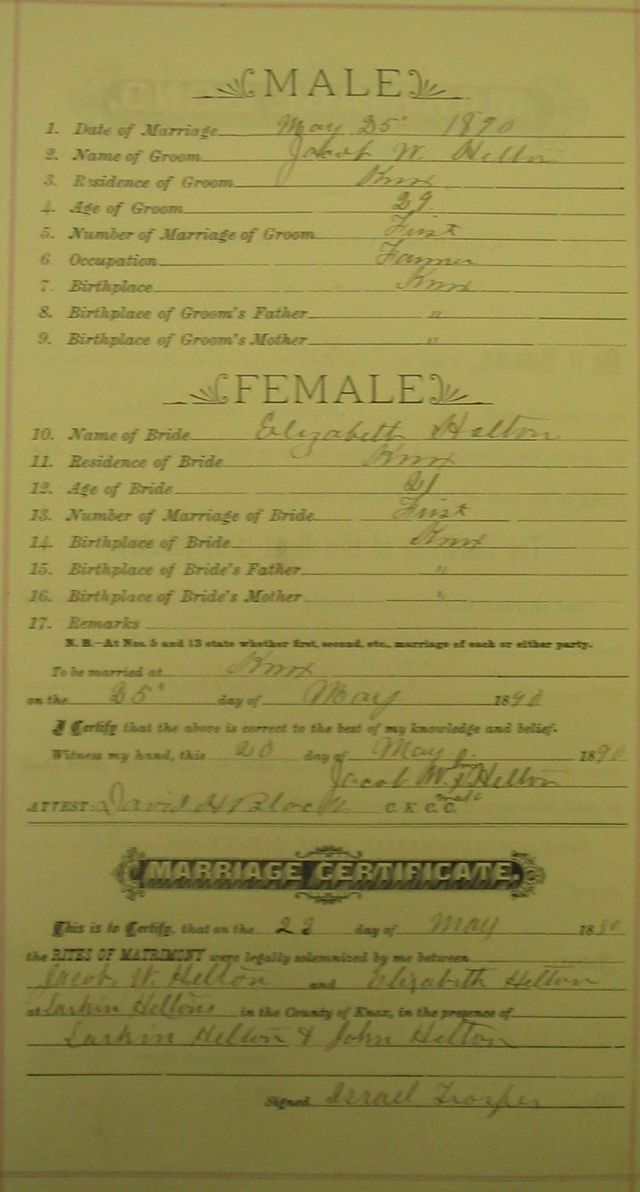 MALE
1. Date of Marriage May 25" 1890
2. Name of Groom Jacob W. Helton
3. Residence of Groom Knox
4. Age of Groom 29
5. Number of Marriage of Groom First
6. Occupation Farmer
7. Birthplace Knox
8. Birthplace of Groom's Father "
9. Birthplace of Groom's Mother "
FEMALE
10. Name of Bride Elizabeth Helton
11. Residence of Bride Knox
12. Age of Bride 21
13. Number of Marriage of Bride First
14. Birthplace of Bride Knox
15. Birthplace of Bride's Father "
16. Birthplace of Bride's Mother "
17. Remarks
N. B.—At Nos. 5 and 13 state whether first, second, etc., marriage of each or either party.
To be married at Knox
on the 25" day of May 1890
I Certify that the above is correct to the best of my knowledge and belief.
Witness my hand, this 20 day of May 1890
Jacob W. x Helton
ATTEST: David H Black C. K. C. C.
MARRIAGE CERTIFICATE.
This is to Certify, that on the day of May 18
the RITES OF MATRIMONY were legally solemnized by me between
Jacob W. Helton and Elizabeth Helton
at Larkin Heltons in the County of Knox, in the presence of
Larkin Helton & John Helton
Signed Israel Trosper